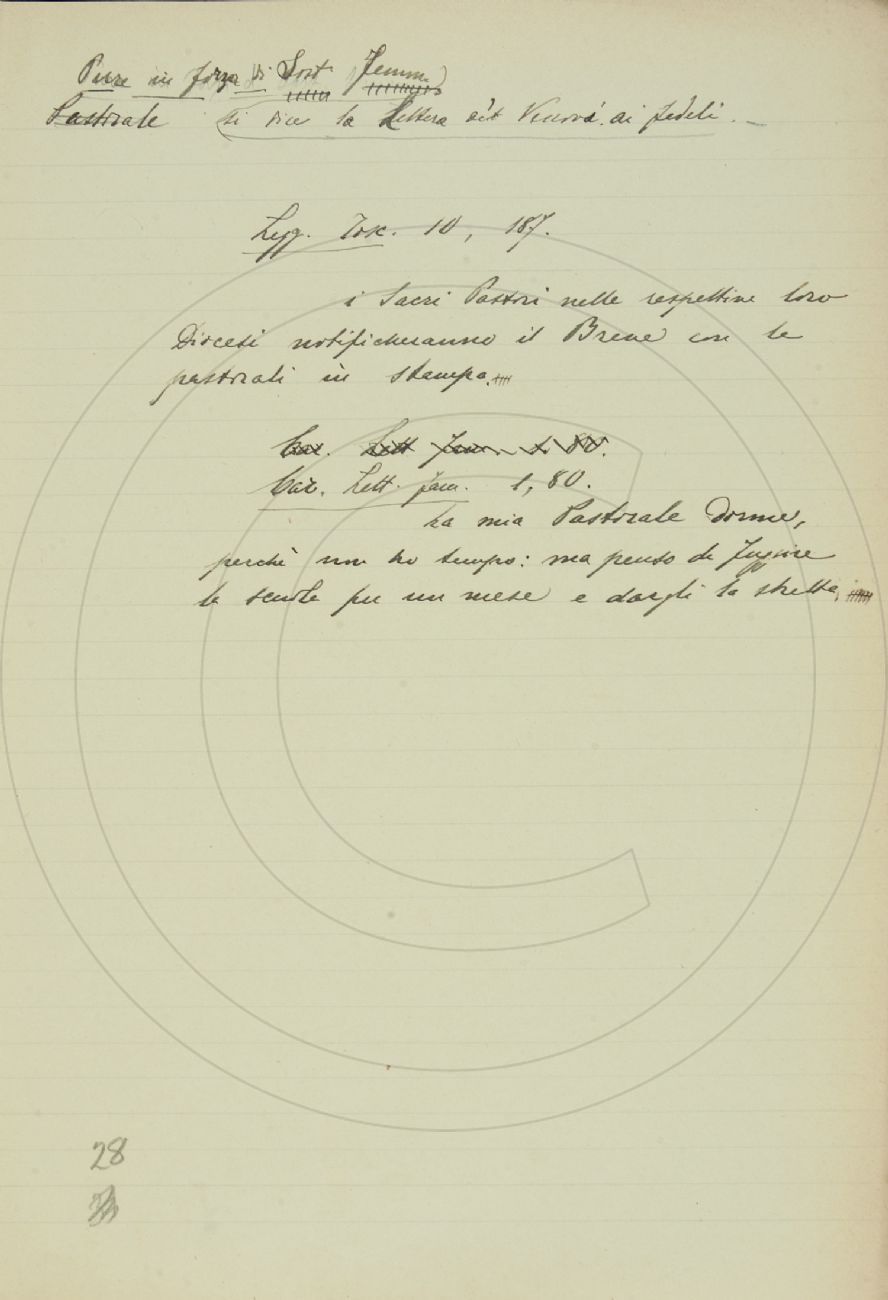 Pure in forza di Sost. Femm.
Pastorale si dice la Lettera de' Vescovi ai fedeli. —
Legg. Tosc. 10, 187.
i Sacri Pastori nelle respettive loro
Diocesi notificheranno il Breve con le
pastorali in stampa.
Car. Lett. fam. 1, 80.
Car. Lett. fam. 1, 80.
La mia Pastorale dorme,
perchè non ho tempo: ma penso di fuggire
le scuole per un mese e dargli la stretta.
28